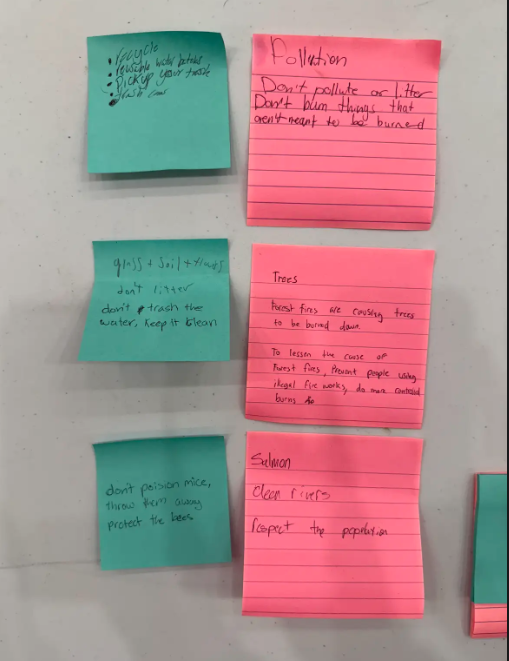 • recycle
• reusable water bottles
• Pick up your trash
• trash
Pollution
Don't pollute or litter
Don't burn things that
aren't meant to be burned
glass + soil +
don't litter
don't trash the
water, keep it clean
Trees
Forest fires are causing trees
to be burned down.
To lessen the cause of
forest fires, Prevent people using
illegal fire works, do more controled
burns
don't poision mice,
throw them away
protect the bees
Salmon
Clean rivers
respect the population